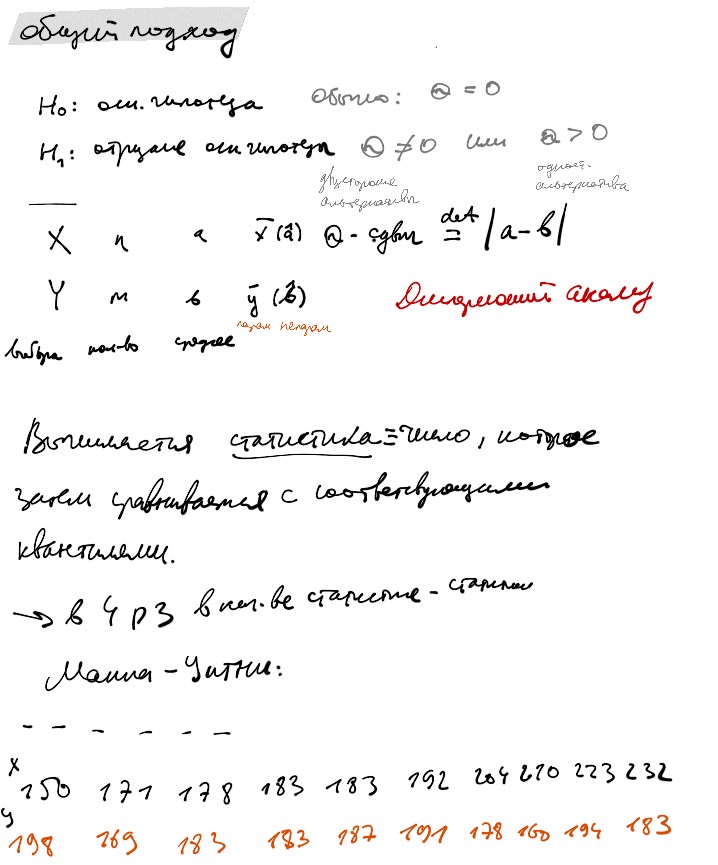 общий подход
H₀: осн. гипотеза Обычно: Θ = 0
H₁: отрицание осн гипотезы Θ ≠ 0 или Θ > 0
двусторонне альтернативы
одност. альтернатива
X n a x̄ (â) Θ - сдвиг def = |a - b|
Y m b ȳ (b̂)
парам непарам
выбора кол-во среднее
Вычисляется статистика ≡ число, которое
затем сравнивается с соответсвующими
квантилями.
→ в 4 рз в кач.ве статистие -
Манна - Уитни:
_ _ _ _ _ _
X 150 171 178 183 183 192 204 210 223 232
y 198 169 183 183 187 191 178 160 194 183